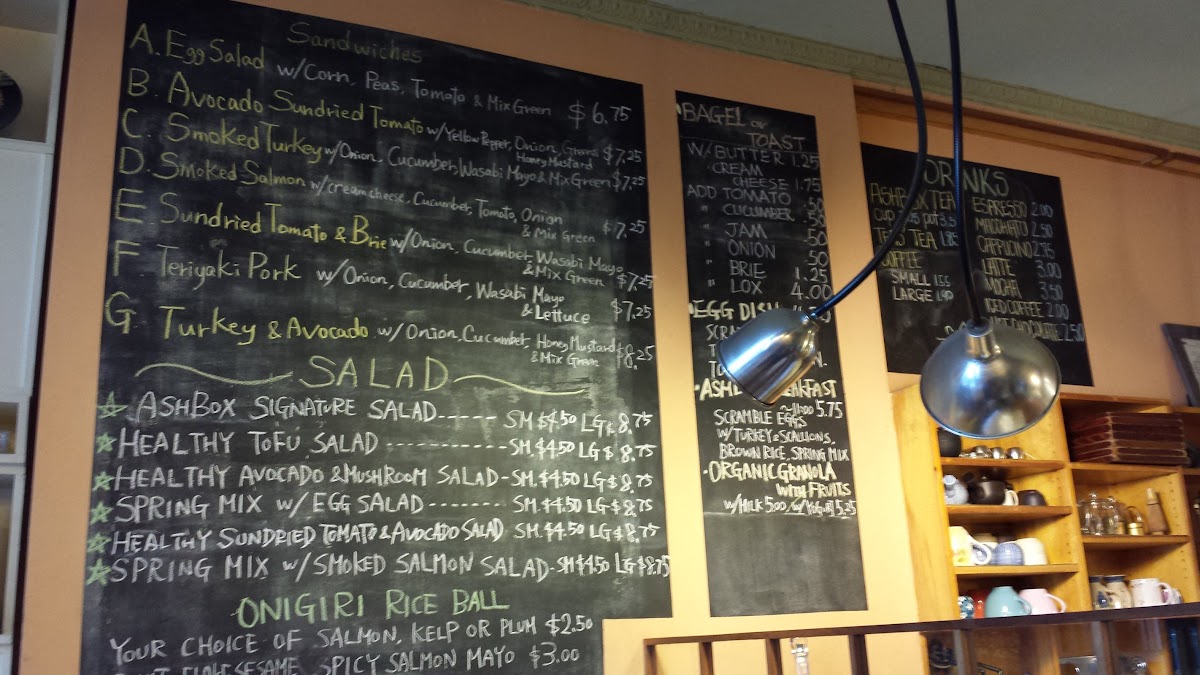 Sandwiches
A. Egg Salad w/Corn, Peas, Tomato & Mix Green $6.75
B. Avocado Sundried Tomato w/Yellow Pepper, Onion, Greens
Honey Mustard $7.25
C. Smoked Turkey w/Onion, Cucumber, Wasabi Mayo & Mix Green $7.25
D. Smoked Salmon w/creamcheese, Cucumber, Tomato, Onion
& Mix Green $7.25
E Sundried Tomato & Brie w/Onion, Cucumber, Wasabi Mayo
& Mix Green $7.25
F. Teriyaki Pork w/Onion, Cucumber, Wasabi Mayo
& Lettuce $7.25
G. Turkey & Avocado w/Onion, Cucumber, Honey Mustard
& Mix Green $8.25
SALAD
ASHBOX SIGNATURE SALAD------ SM $4.50 LG $8.75
HEALTHY TOFU SALAD ------------ SM. $4.50 LG $8.75
HEALTHY AVOCADO & MUSHROOM SALAD- SM. $4.50 LG $8.75
SPRING MIX w/ EGG SALAD -------- SM. $4.50 LG $8.75
HEALTHY SUNDRIED TOMATO & AVOCADO SALAD SM. $4.50 LG $8.75
SPRING MIX w/SMOKED SALMON SALAD- SM $4.50 LG $8.75
ONIGIRI RICE BALL
YOUR CHOICE OF SALMON, KELP OR PLUM $2.50
SESAME, SPICY SALMON MAYO $3.00
BAGEL or
TOAST
W/BUTTER 1.25
CREAM
CHEESE 1.75
ADD TOMATO .50
" CUCUMBER .50
" JAM .50
" ONION .50
" BRIE 1.25
" LOX 4.00
EGG
BREAKFAST
5.75
SCRAMBLE EGGS
W/TURKEY & SCALLIONS,
BROWN RICE, SPRING MIX
ORGANIC GRANOLA
WITH FRUITS
w/MILK 5.00, w/YOGURT 5.25
DRINKS
ASHBOX TEA
CUP POT 3.5
TEA
COFFEE
SMALL 1.55
LARGE 1.90
ESPRESSO 2.00
MACCHIATO 2.50
CAPPUCINO 2.75
LATTE 3.00
MOCHA 3.50
ICED COFFEE 2.00
2.50